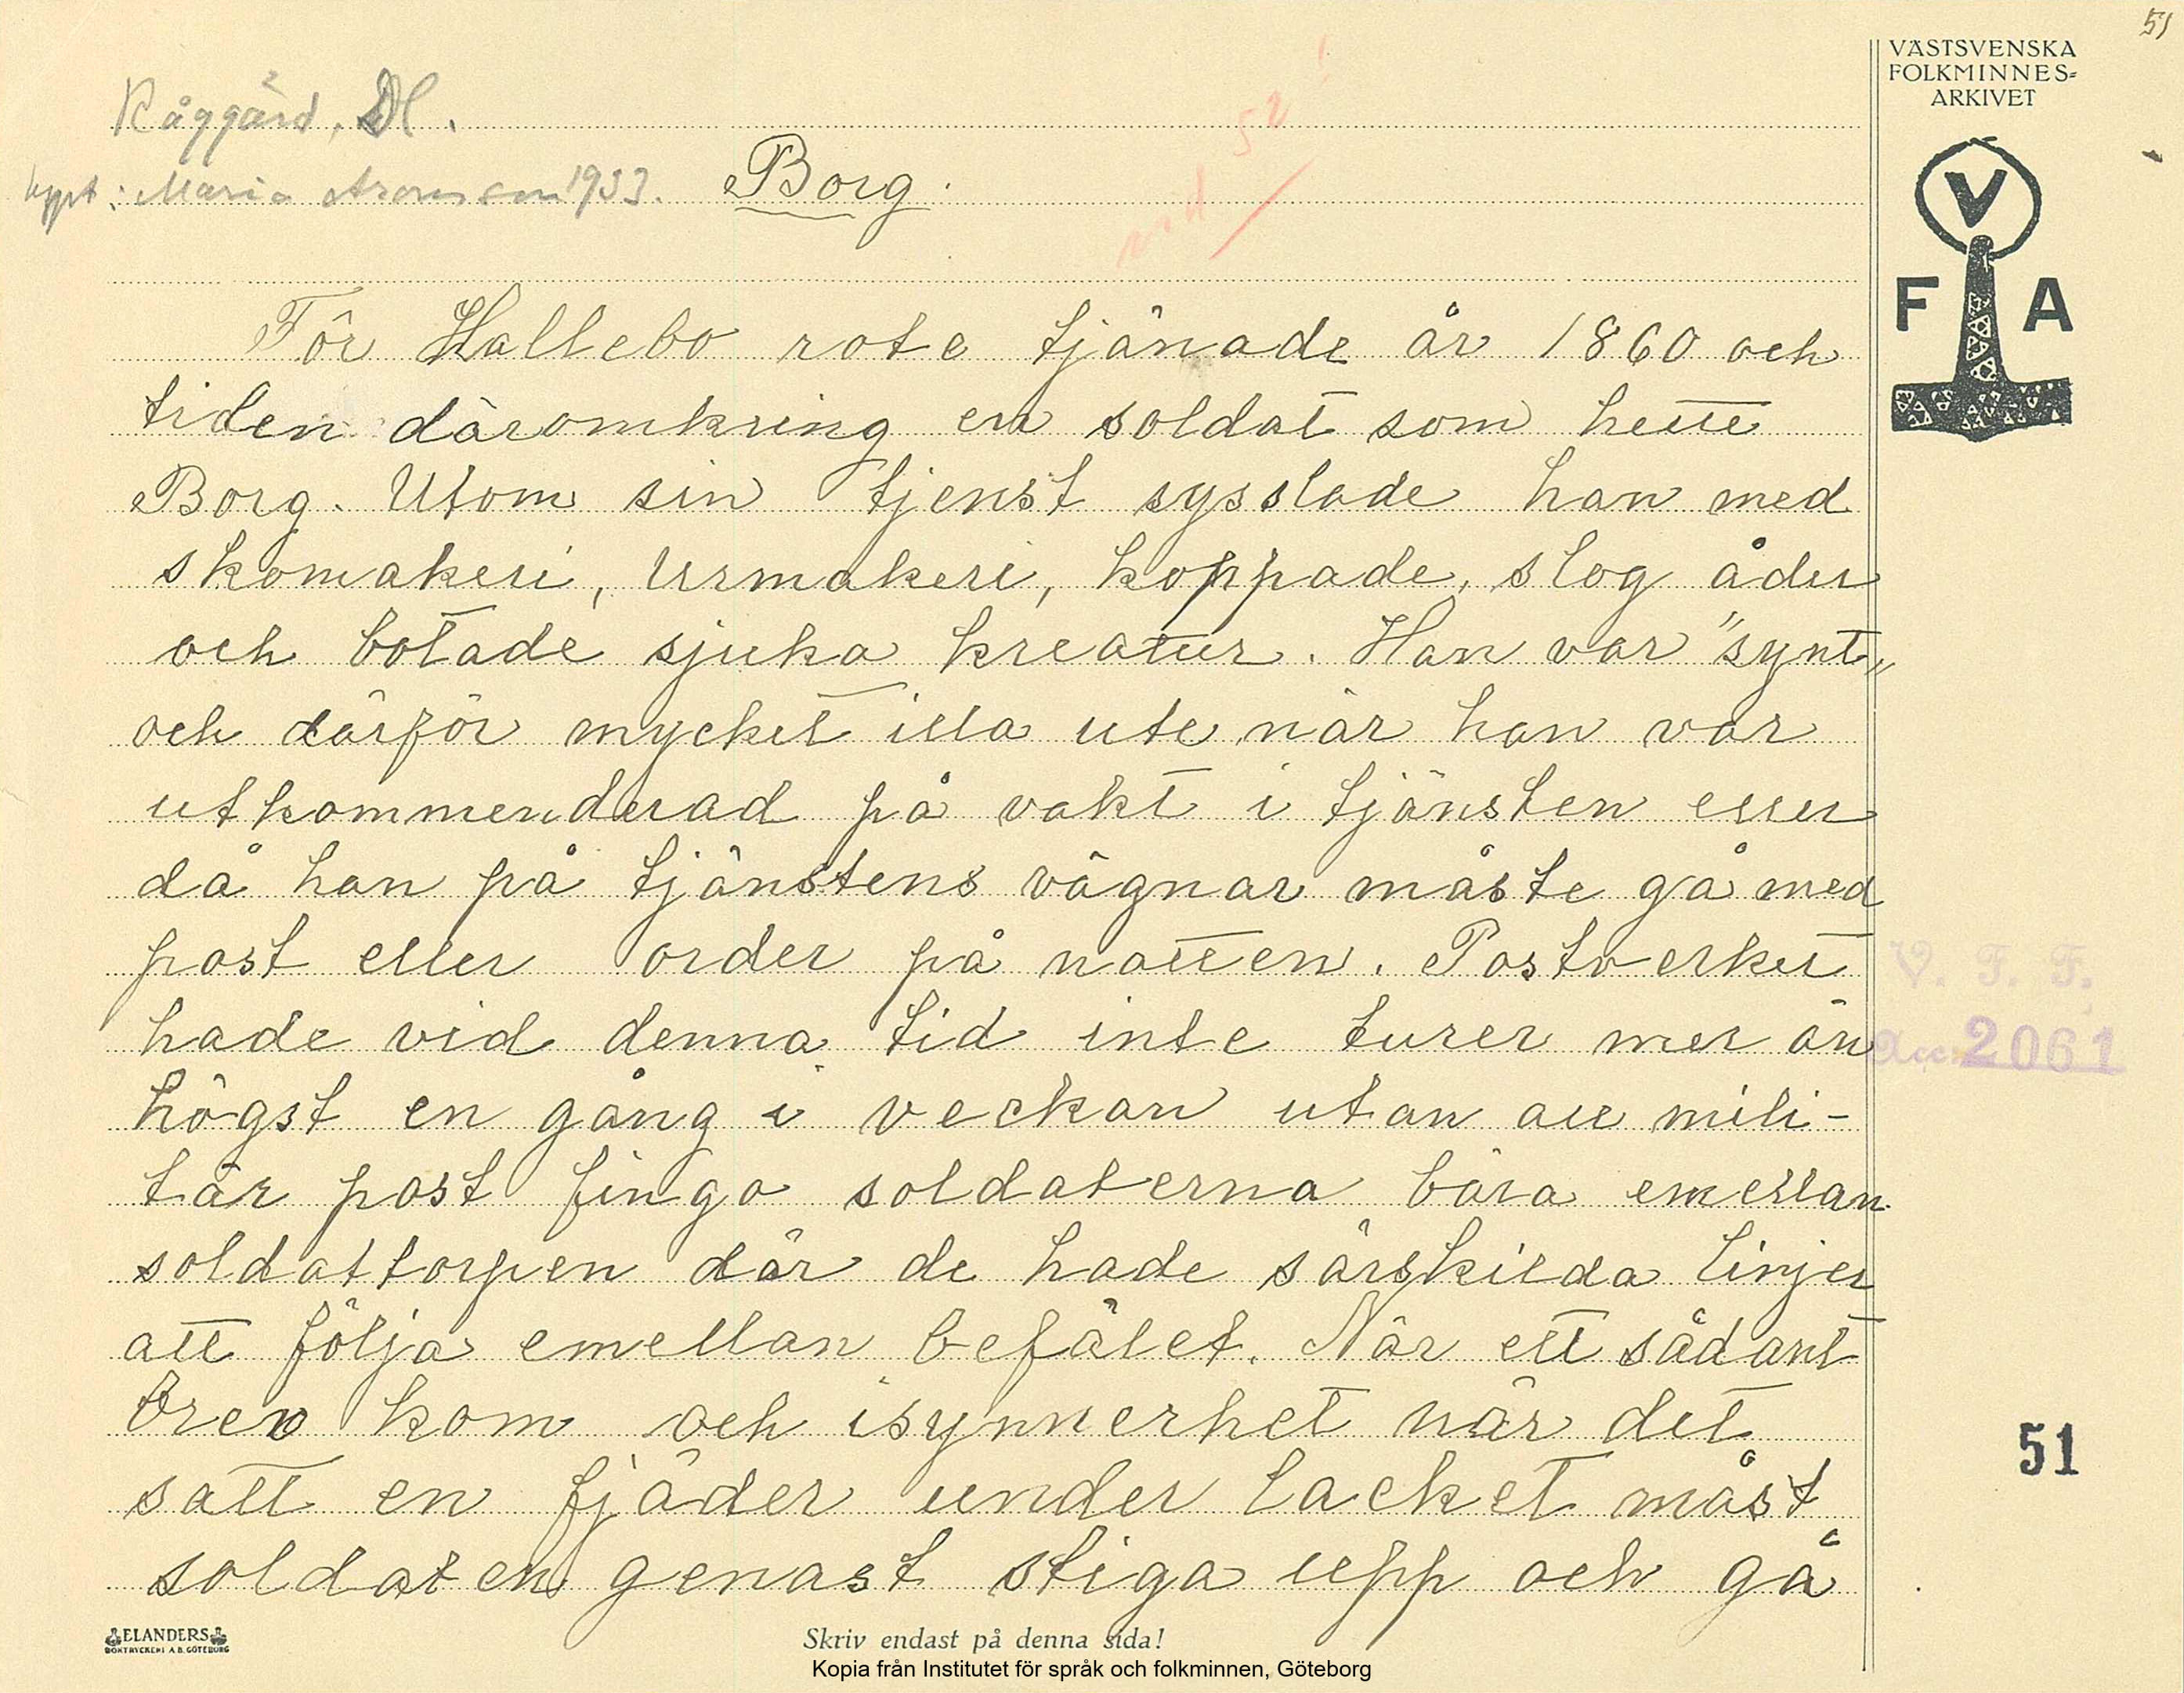 51
VÄSTSVENSKA
FOLKMINNES=
ARKIVET
V
F A
Råggärd, Dl.
uppt: Maria Aronsson 1933.
Borg.
52
För Hallebo rote tjänade år 1860 och
tiden däromkring en soldat som hette
Borg. Utom sin tjenst sysslade han med
skomakeri, Urmakeri, koppade, slog åder
och botade sjuka kreatur. Han var "synt"
och därför mycket illa ute när han var
utkommenderad på vakt i tjänsten eller
då han på tjänstens vägnar måste gå med
post eller order på natten. Postverket
hade vid denna tid inte turer mer än
högst en gång i veckan utan all mili-
tär post fingo soldaterna bära emellan
soldattorpen där de hade särskilda linjer
att följa emellan befälet. När ett sådant
brev kom och isynnerhet när det
satt en fjäder under lacket måst
soldaten genast stiga upp och gå
V. F. F.
Acc 2061
51
ELANDERS
BOKTRYCKERI A.B. GÖTEBORG
Skriv endast på denna sida!
Kopia från Institutet för språk och folkminnen, Göteborg